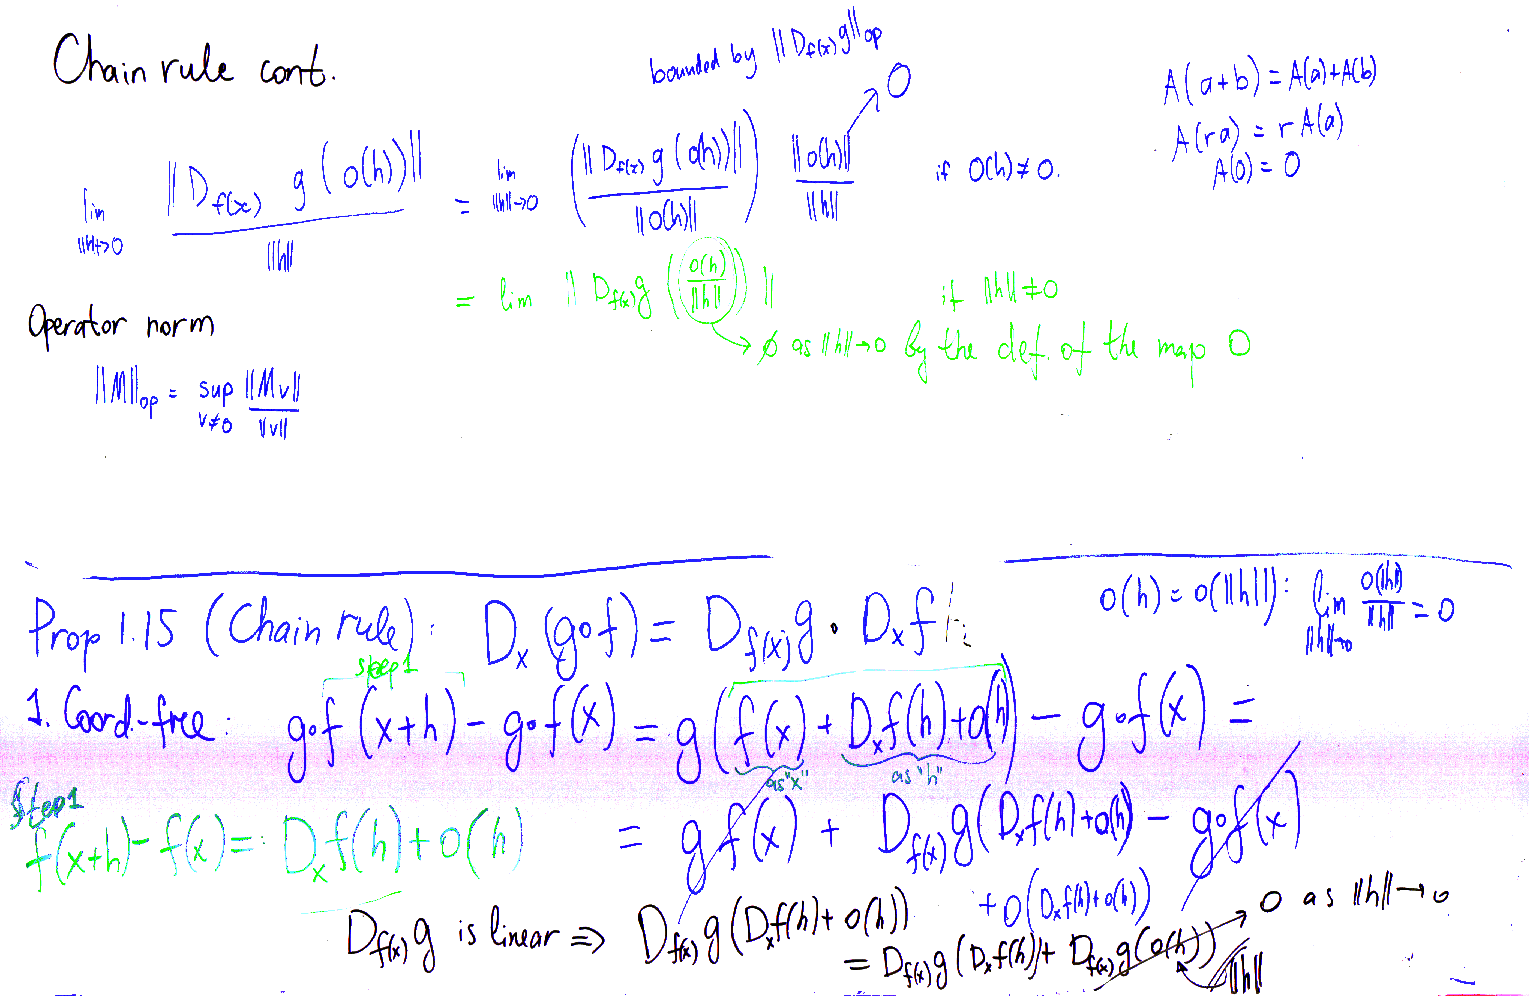 Chain rule cont.
bounded by ||D_{f(x)}g||_{op}
lim_{||h||→0} ||D_{f(x)} g(o(h))|| / ||h|| = lim_{||h||→0} (||D_{f(x)} g(o(h))|| / ||o(h)||) ||o(h)|| / ||h|| → 0 if o(h)≠0.
A(a+b) = A(a)+A(b)
A(ra) = rA(a)
A(0) = 0
= lim ||D_{f(x)}g(o(h)/||h||)|| if ||h||≠0
→ 0 as ||h||→0 by the def. of the map o
Operator norm
||M||_{op} = sup_{v≠0} ||Mv|| / ||v||
Prop 1.15 (Chain rule): D_x(g∘f) = D_{f(x)}g · D_x f
o(h) = o(||h||): lim_{||h||→0} o(||h||) / ||h|| = 0
step1
1. Coord-free: g∘f(x+h) - g∘f(x) = g(f(x) + D_x f(h) + o(h)) - g∘f(x) =
as "x" as "h"
Step1
f(x+h) - f(x) = D_x f(h) + o(h)
= g f(x) + D_{f(x)}g(D_x f(h) + o(h)) - g∘f(x)
+ o(D_x f(h) + o(h))
D_{f(x)}g is linear ⇒ D_{f(x)}g(D_x f(h) + o(h))
= D_{f(x)}g(D_x f(h)) + D_{f(x)}g(o(h)) / ||h|| → 0 as ||h||→0